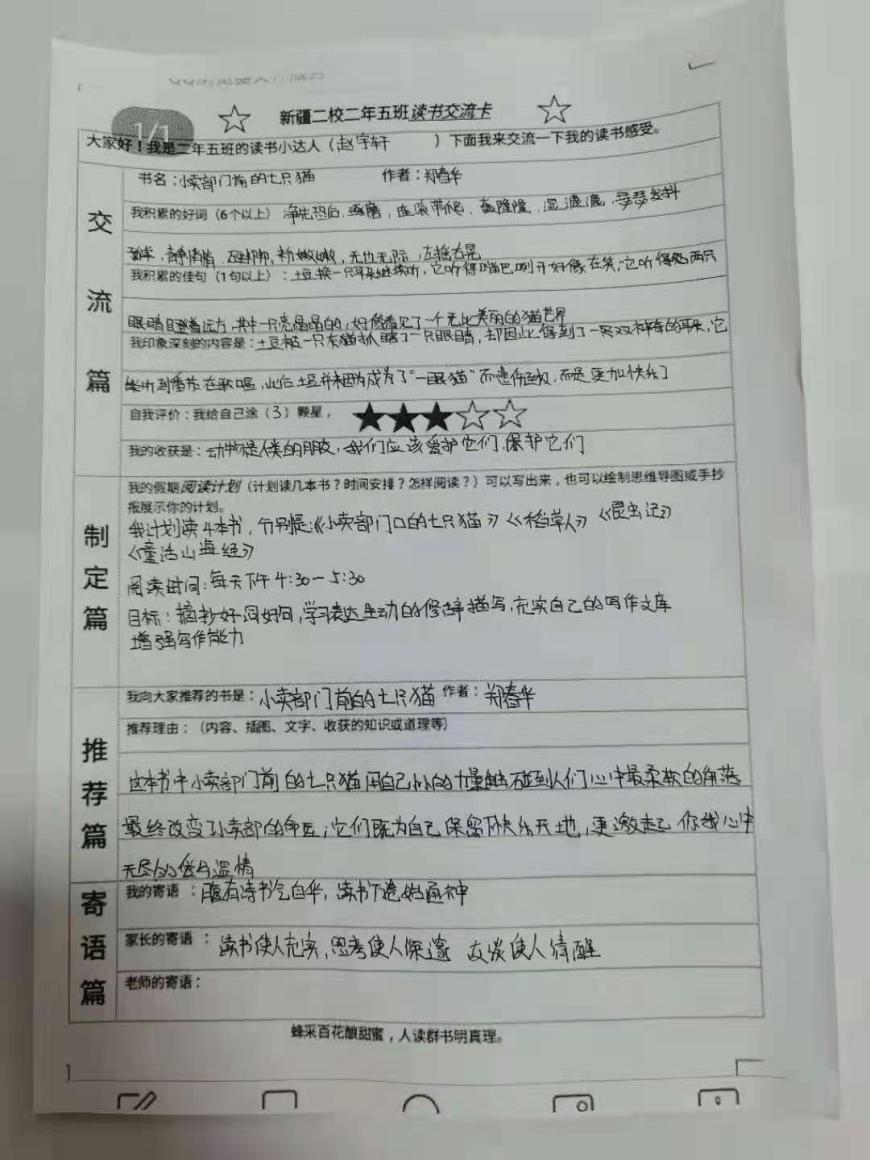 1/1
新疆二校二年五班读书交流卡
大家好！我是二年五班的读书小达人（赵宇轩 ）下面我来交流一下我的读书感受。
交流篇
书名：小卖部门前的七只猫 作者：郑春华
我积累的好词（6个以上） 净先恐后，琢磨，连滚带爬，轰隆隆，湿漉漉，瑟瑟发抖
静悄悄，硬邦邦，粉嫩嫩，无边无际，左摇右晃
我积累的佳句（1句以上）：土豆换一只耳朵继续听，它听得嘴巴咧开好像在笑，它听得把两只
眼睛瞪着远方，其中一只亮晶晶的，好像看见了一个无比美丽的猫世界
我印象深刻的内容是：土豆被一只灰猫抓瞎了一只眼睛，却因此得到了一双神奇的耳朵，它
能听到番茄在歌唱，此后土豆并没因为成为了“一眼猫”而悲伤，而是更加快乐了
自我评价：我给自己涂（3）颗星，
我的收获是：动物是人类的朋友，我们应该爱护它们，保护它们
制定篇
我的假期阅读计划（计划读几本书？时间安排？怎样阅读？）可以写出来，也可以绘制思维导图或手抄
报展示你的计划。
我计划读4本书，分别是《小卖部门口的七只猫》《稻草人》《昆虫记》
《童话山海经》
阅读时间：每天下午4:30－5:30
目标：摘抄好词好句，学习表达生动的修辞描写，充实自己的写作文库
增强写作能力
推荐篇
我向大家推荐的书是：小卖部门前的七只猫 作者：郑春华
推荐理由：（内容、插图、文字、收获的知识或道理等）
这本书中小卖部门前的七只猫用自己小小的力量触碰到人们心中最柔软的角落
最终改变了小卖部的命运，它们既为自己保留下快乐天地，更激起你我心中
无尽的爱与温情
寄语篇
我的寄语：腹有诗书气自华，读书下笔如通神
家长的寄语：读书使人充实，思考使人深邃 交谈使人清醒
老师的寄语：
蜂采百花酿甜蜜，人读群书明真理。